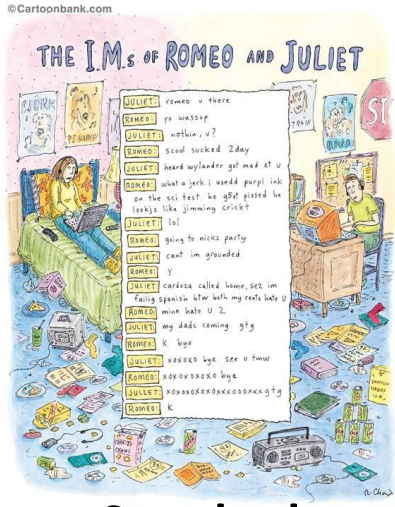 ©Cartoonbank.com
THE I.M.s OF ROMEO AND JULIET
BJORK
PJ HARVEY
TRAIN
ST
JULIET: romeo u there
ROMEO: yo wassup
JULIET: nothin, u?
ROMEO: scool sucked 2day
JULIET: heard wylander got mad at u
ROMEO: what a jerk i usedd purpl ink
on the sci test. he g5ot pissed he
lookjs like jimminy crickt
JULIET: lol
ROMEO: going to nicks party
JULIET: cant im grounded
ROMEO: y
JULIET: cardoza called home, sez im
failig spanish btw both my rents hate U
ROMEO: mine hate U 2
JULIET: my dads coming gtg
ROMEO: k bye
JULIET: xoxoxo bye see u tmw
ROMEO: xoxoxoxoxo bye
JULIET: xoxoxoxoxoxxxooxxxgtg
ROMEO: k
R. Chast